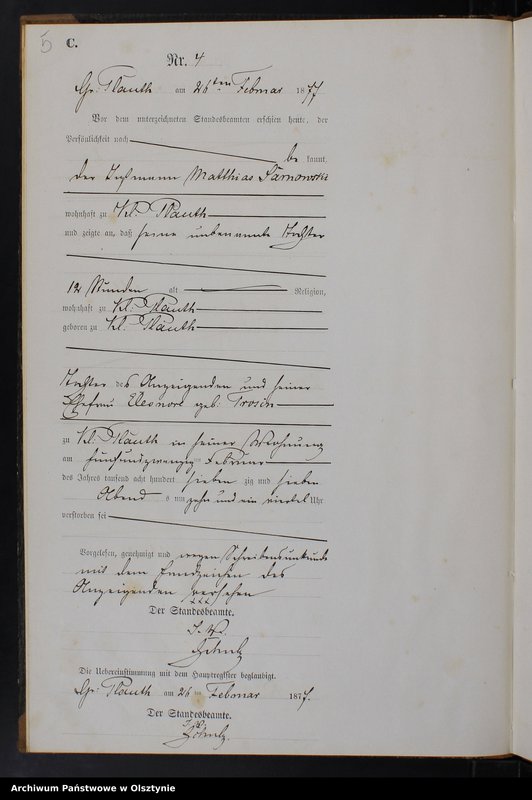 5 C.
Nr. 4
Gr: Plauth am 26ten Februar 1877
Vor dem unterzeichneten Standesbeamten erschien heute, der
Persönlichkeit nach
be kannt,
der Matthias Sarnowski
wohnhaft zu Kl. Plauth
und zeigte an, daß seine unbenannte Tochter
12 Stunden alt Religion,
wohnhaft zu Kl: Plauth
geboren zu Kl: Plauth
Tochter des Anzeigenden und seiner
Ehefrau Eleonore geb: Trosin
zu Kl: Plauth in seiner Wohnung
am fünfundzwanzig ten Februar
des Jahres tausend acht hundert sieben zig und sieben
Abend s um zehn und ein viertel Uhr
verstorben sei
Vorgelesen, genehmigt und wegen Schreibensunkunde
mit dem Handzeichen des
Anzeigenden versehen
xxx
Der Standesbeamte.
Die Uebereinstimmung mit dem Hauptregister beglaubigt.
Gr: Plauth am 26 ten Februar 1877.
Der Standesbeamte.
Archiwum Państwowe w Olsztynie